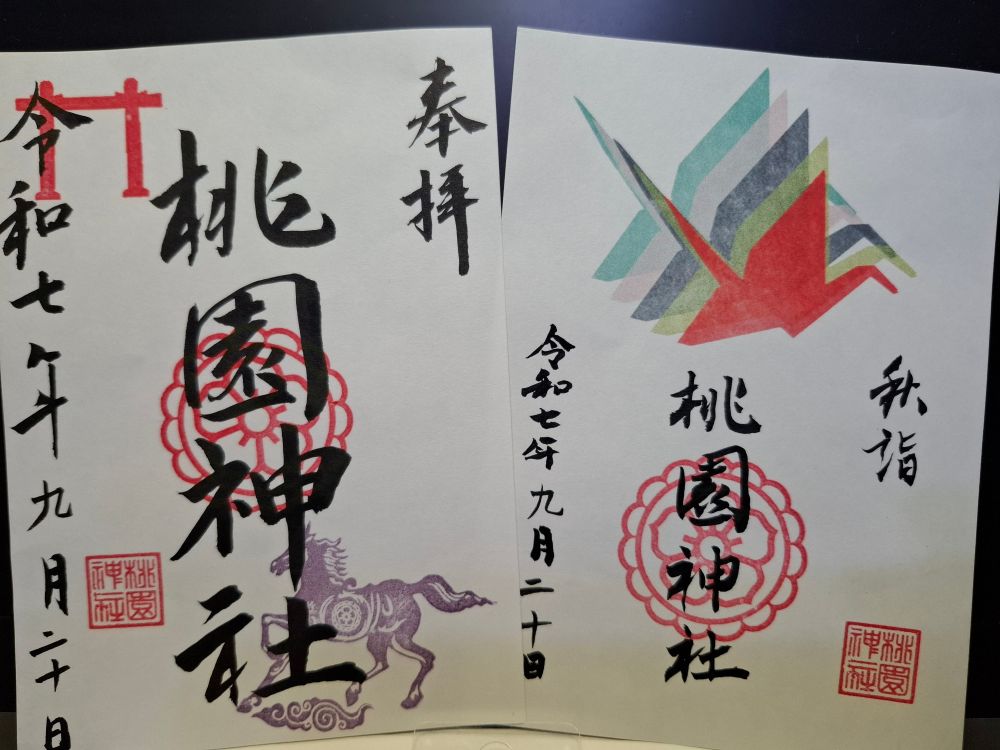 奉拝
桃園神社
令和七年九月二十日
桃園
神社
秋詣
桃園神社
令和七年九月二十日
桃園
神社